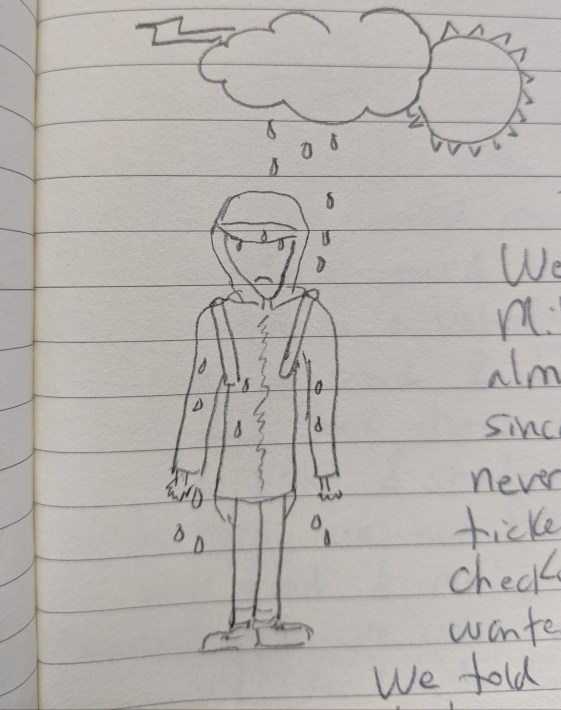 We
Mi
alm
sinc
never
ticke
check
wante
We told